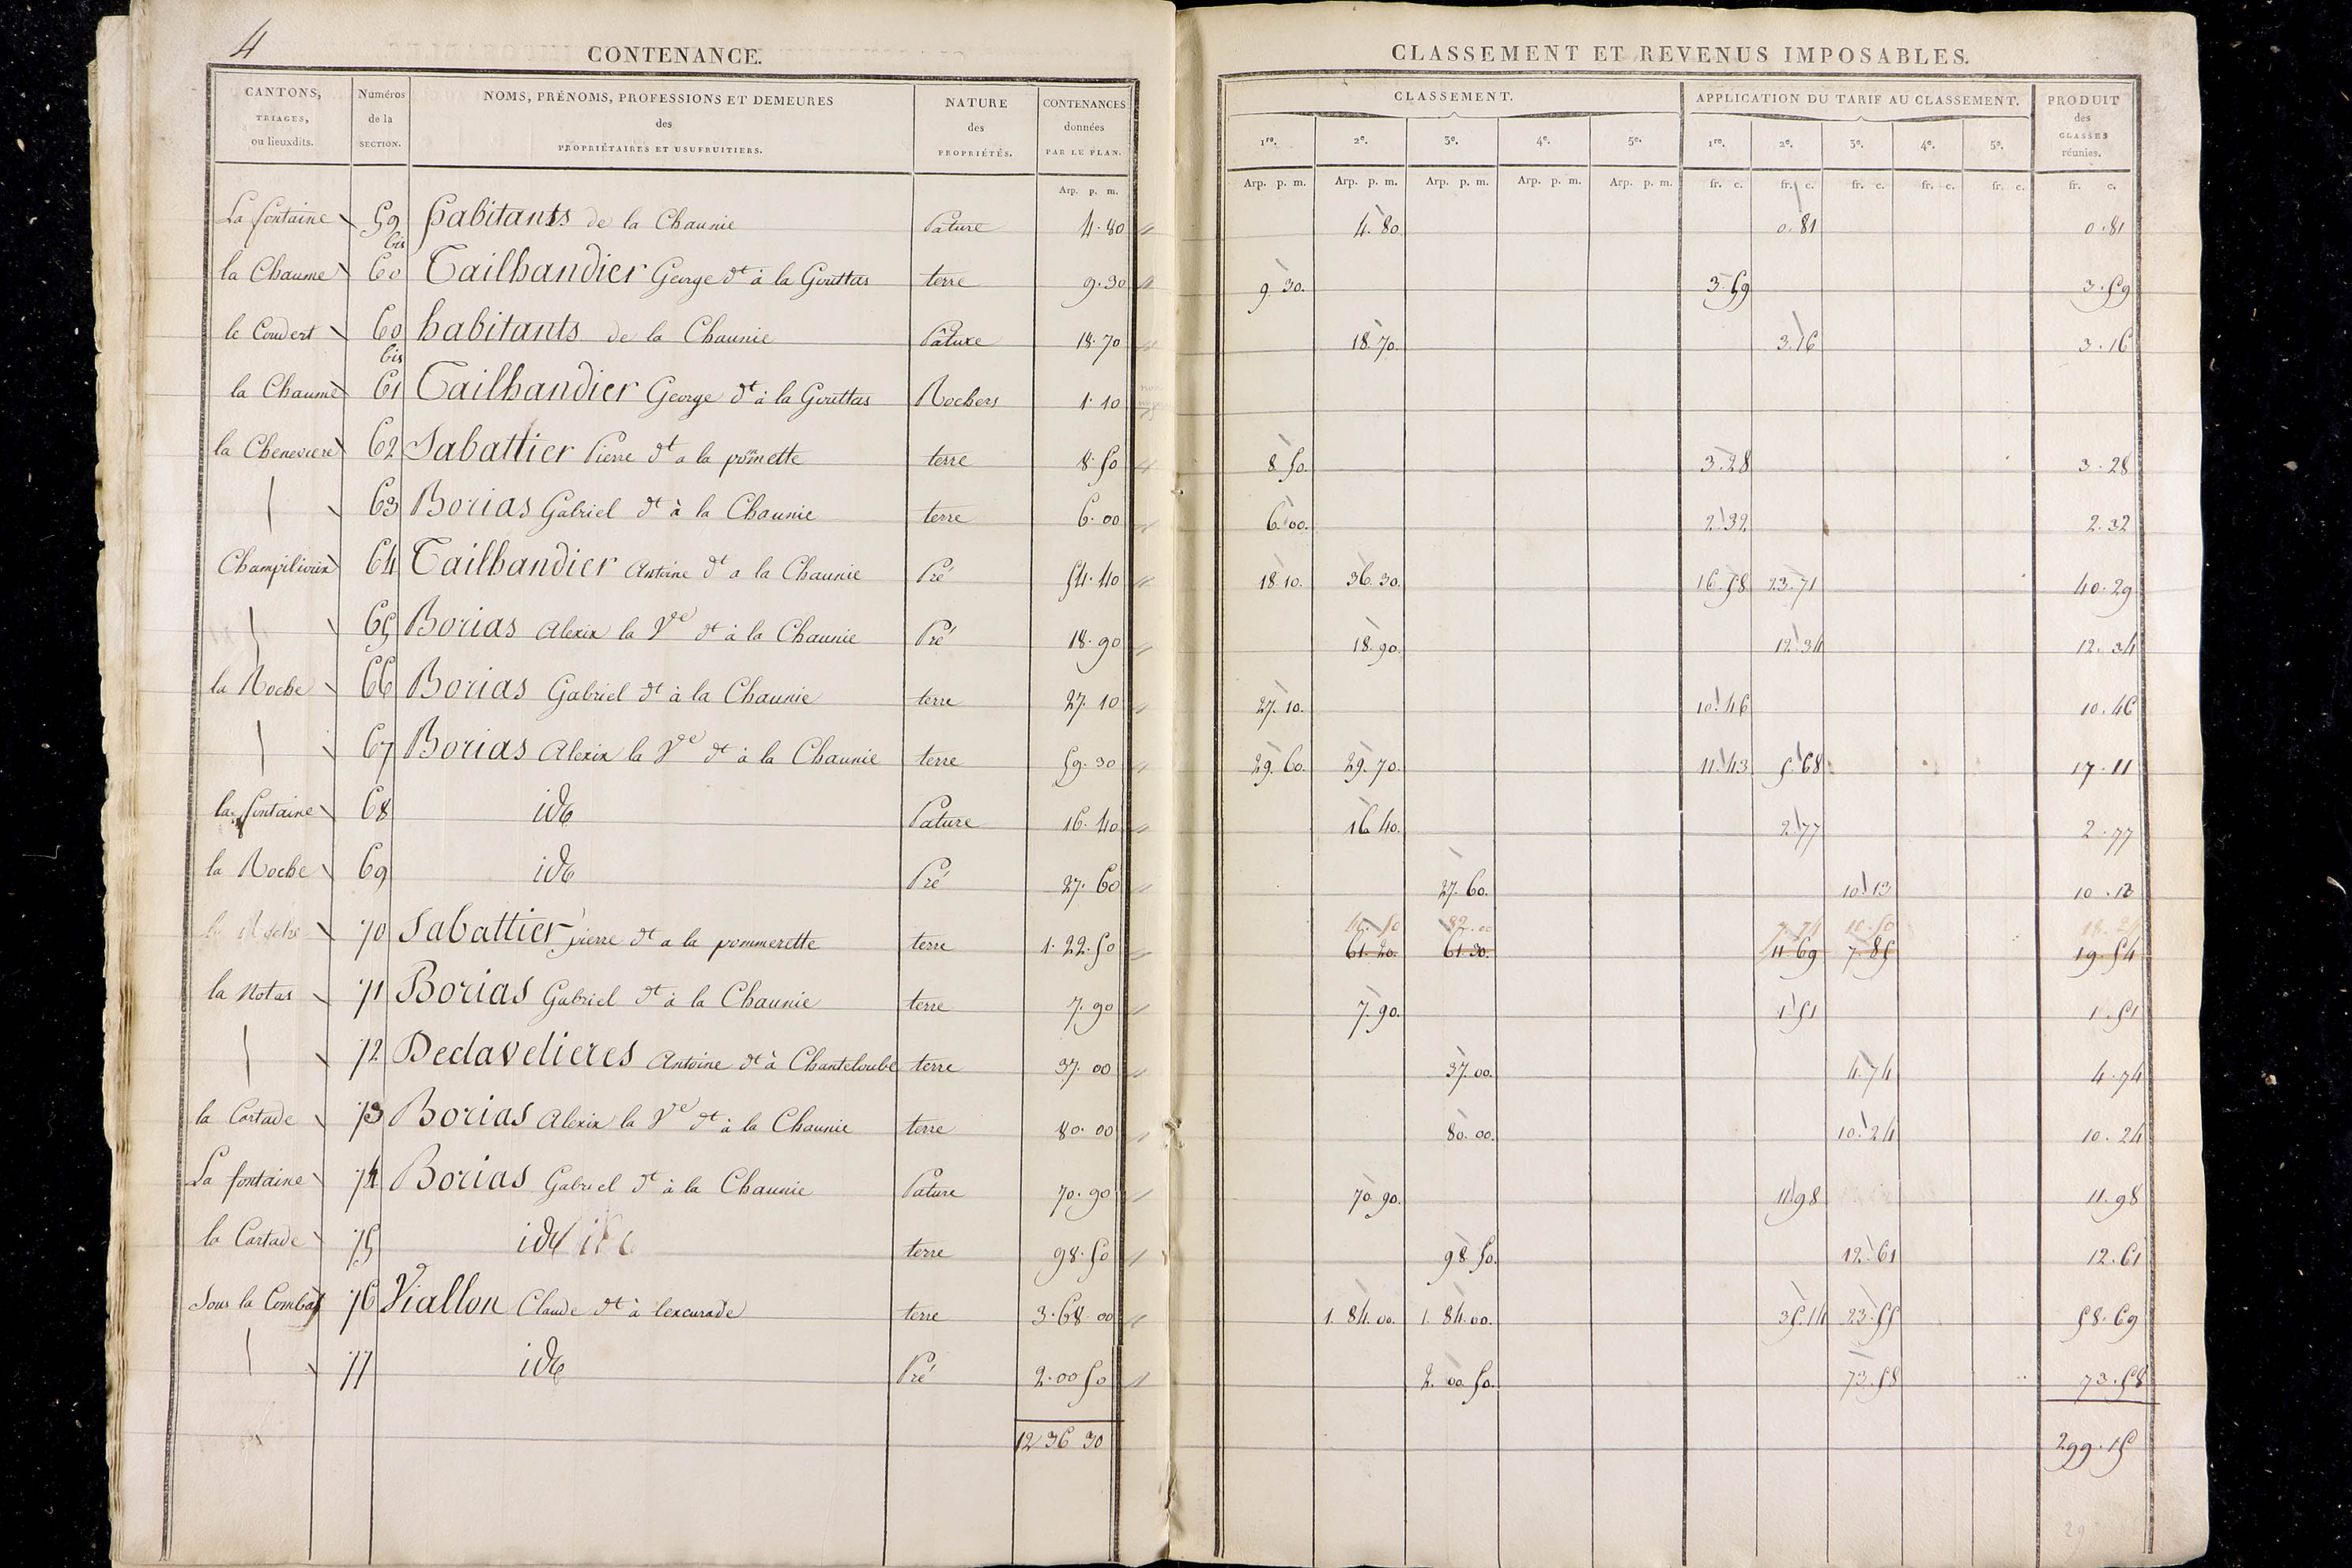 4
CONTENANCE.
CANTONS, TRIAGES, ou lieuxdits. | Numéros de la SECTION. | NOMS, PRÉNOMS, PROFESSIONS ET DEMEURES des PROPRIÉTAIRES ET USUFRUITIERS. | NATURE des PROPRIÉTÉS. | CONTENANCES données PAR LE PLAN.
Arp. p. m.
CLASSEMENT ET REVENUS IMPOSABLES.
CLASSEMENT. | APPLICATION DU TARIF AU CLASSEMENT. | PRODUIT des CLASSES réunies.
1re. | 2e. | 3e. | 4e. | 5e. | 1re. | 2e. | 3e. | 4e. | 5e.
Arp. p. m. | Arp. p. m. | Arp. p. m. | Arp. p. m. | Arp. p. m. | fr. c. | fr. c. | fr. c. | fr. c. | fr. c. | fr. c.
La fontaine 59 bis habitants de la Chaunie Pature 4.80 4.80. 0.81 0.81
la Chaume 60 Tailhandier George dt à la Gouttas terre 9.30 9 30. 3.59 3.59
le Coudert 60 bis habitants de la Chaunie Pâture 18.70 18.70. 3.16 3.16
la Chaume 61 Tailhandier George dt à la Gouttas Rochers 1.10
la Cheneviere 62 Sabattier Pierre dt a la pomette terre 8.50 8 50. 3.28 3.28
63 Borias Gabriel dt à la Chaunie terre 6.00 6.00. 2.32 2.32
64 Tailhandier Antoine dt a la Chaunie Pré 54.40 18.10. 36.30. 16.58 23.71 40.29
65 Borias Alexix la Vve dt à la Chaunie Pré 18.90 18.90. 12.34 12.34
la Roche 66 Borias Gabriel dt à la Chaunie terre 27.10 27.10. 10.46 10.46
67 Borias Alexix la Vve dt à la Chaunie terre 59.30 29.60. 29.70. 11.43 5.68 17.11
la fontaine 68 ide Pature 16.40 16 40. 2.77 2.77
la Roche 69 ide Pré 27.60 27.60. 10.13 10.13
la Roche 70 Sabattier pierre dt a la pommerette terre 1.22.50 40.50 82.00 7.74 10.50 18.24
61.20. 61.30. 11.69 7.85 19.54
la Notas 71 Borias Gabriel dt à la Chaunie terre 7.90 7.90. 1.51 1.51
72 Declavelieres Antoine dt à Chanteloube terre 37.00 37.00. 4.74 4.74
la Cartade 73 Borias Alexix la Vve dt à la Chaunie terre 80.00 80.00. 10.24 10.24
La fontaine 74 Borias Gabriel dt à la Chaunie Pature 70.90 70 90. 11.98 11.98
la Cartade 75 ide terre 98.50 98.50. 12.61 12.61
Sous la Combas 76 Viallon Claude dt à lexcurade terre 3.68.00 1.84.00. 1.84.00. 35.14 23.55 58.69
77 ide Pré 2.00 50 2.00 50. 73.58 73.58
12 36 30 299.15